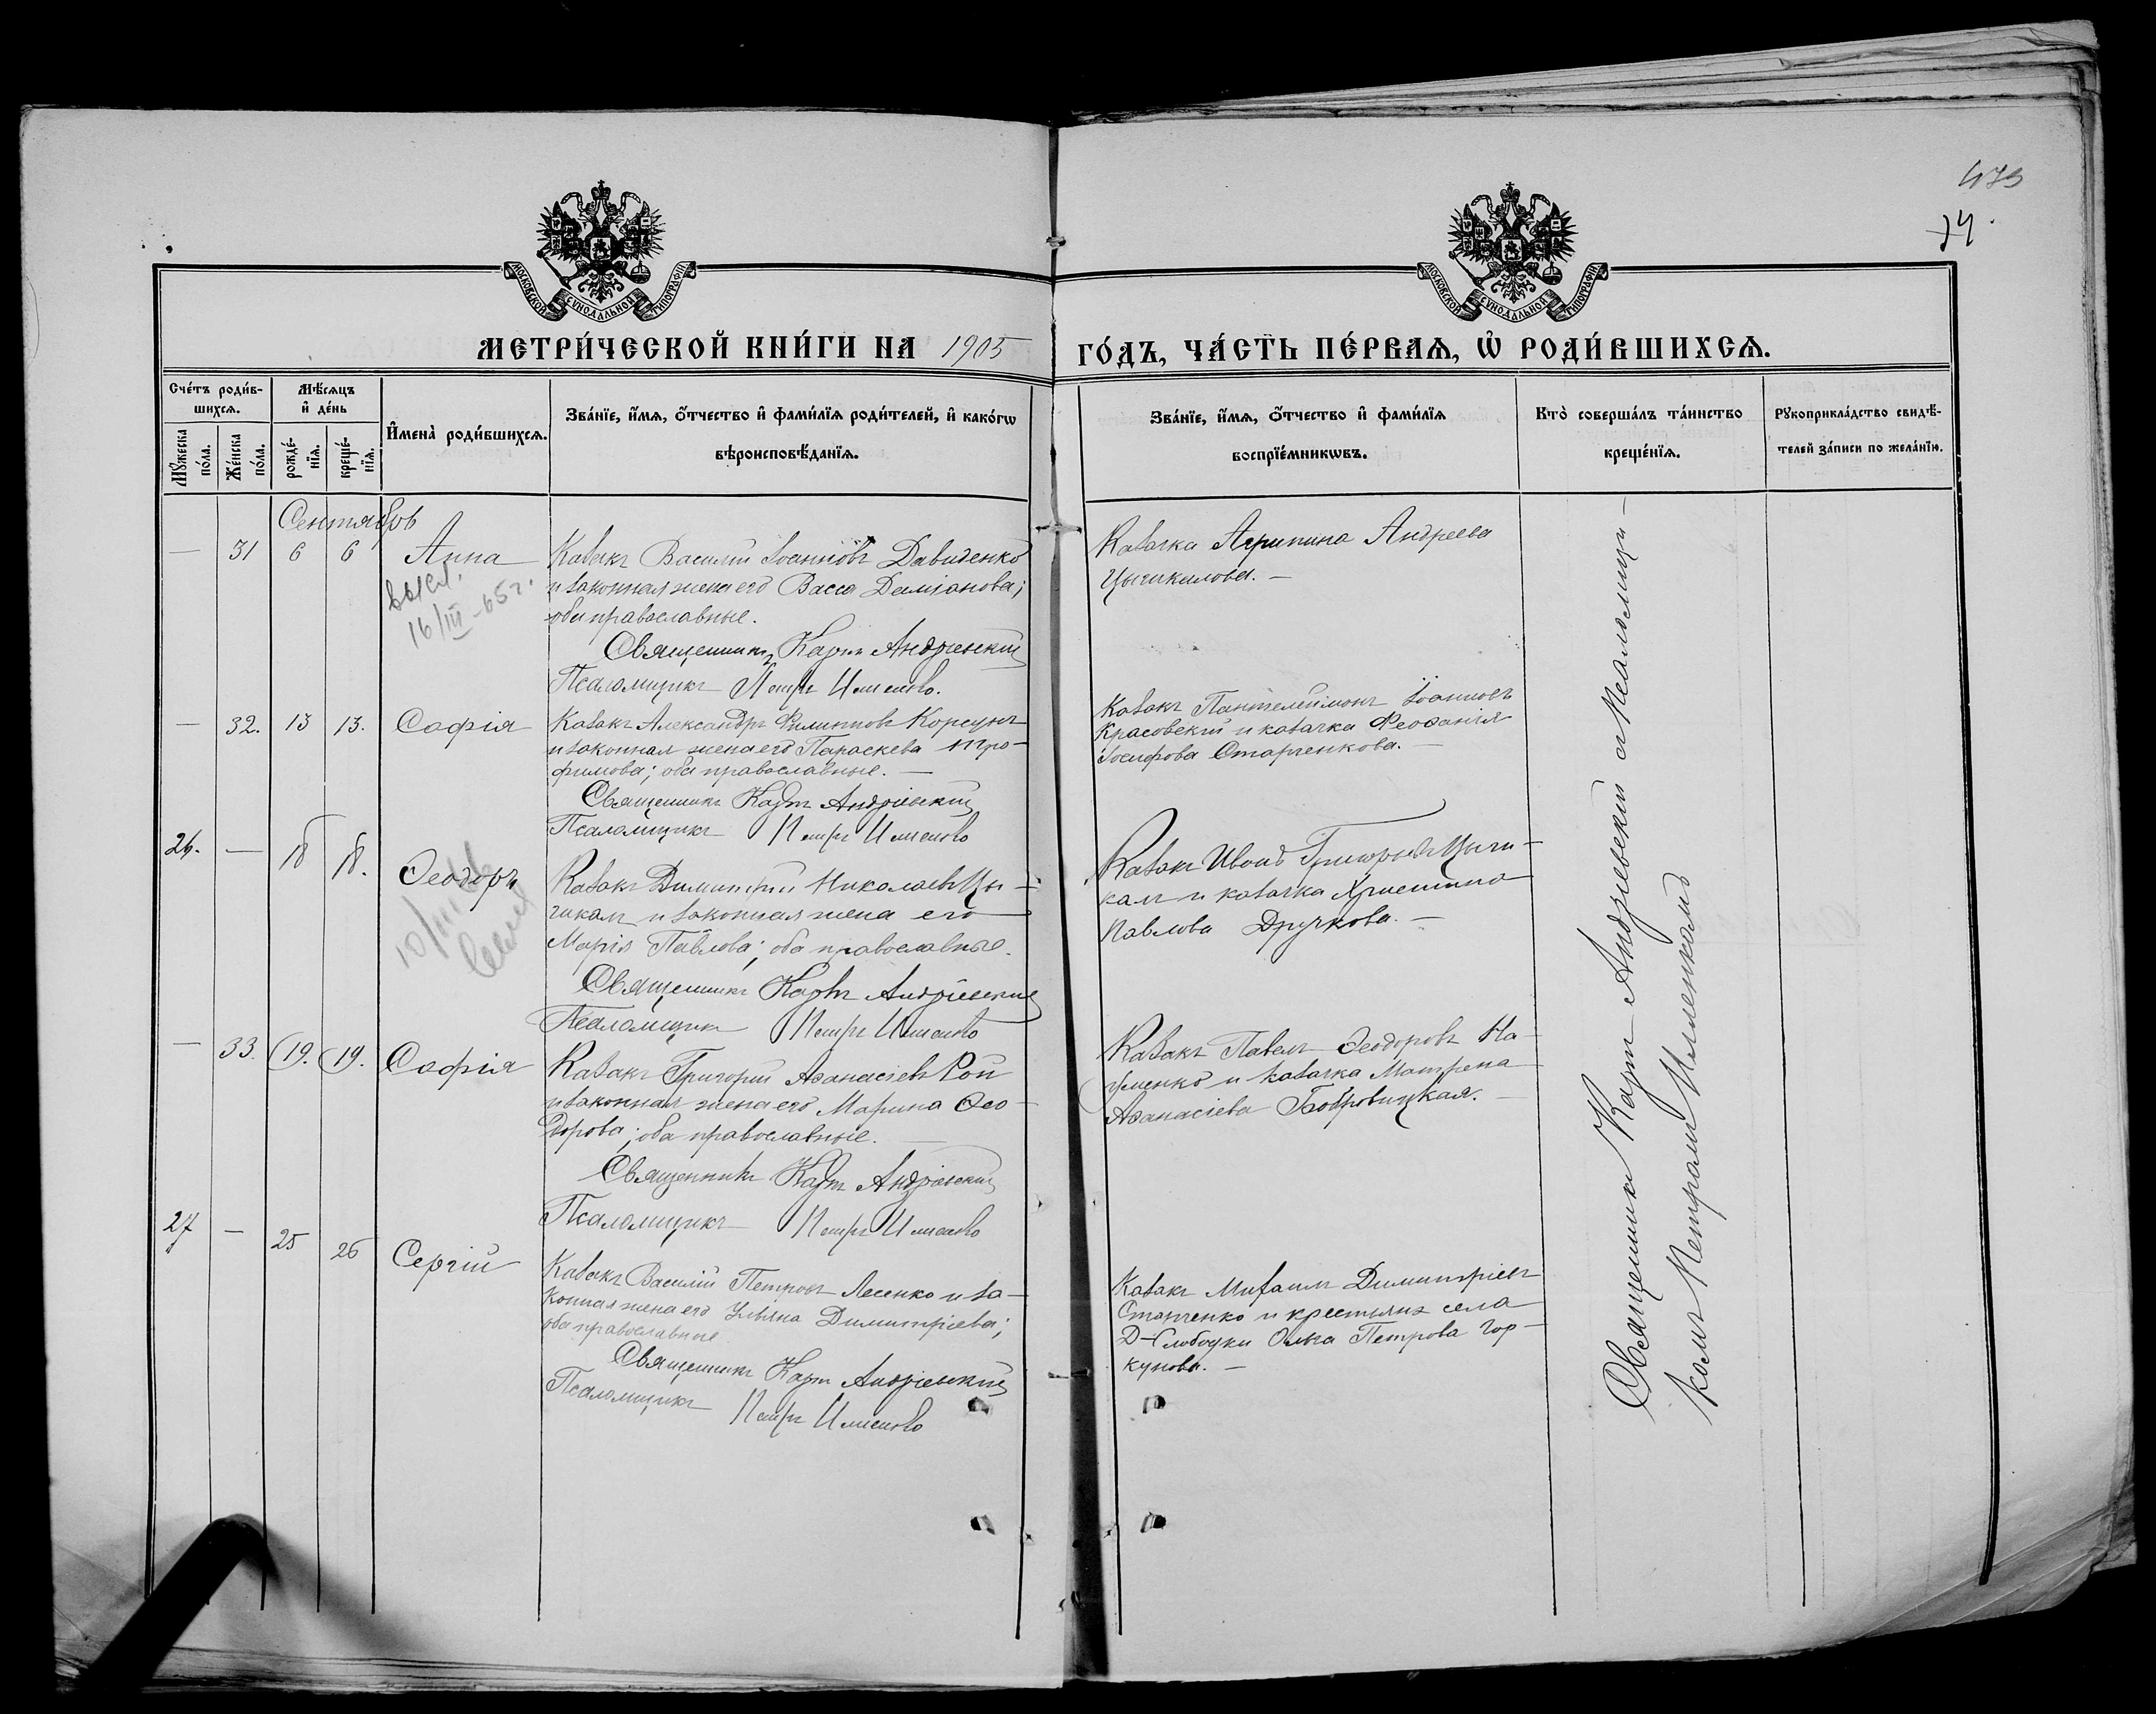 479
74.
МОСКОВСКОЙ СѴНОДАЛЬНОЙ ТИПОГРАФІИ
МОСКОВСКОЙ СѴНОДАЛЬНОЙ ТИПОГРАФІИ
МЕТРИ́ЧЕСКОЙ КНИ́ГИ НА 1905 ГО́ДЪ, ЧА́СТЬ ПЕ́РВАѦ, Ѽ РОДИ́ВШИХСѦ.
Сче́тъ роди́в-
шихсѧ.
Мѣ́сѧцъ
и҆ де́нь
Мꙋ́жеска
по́ла.
Же́нска
по́ла.
рожде́-
нїѧ.
креще́-
нїѧ.
И҆мена̀ роди́вшихсѧ.
Зва́нїе, и҆́мѧ, ѻ҆́тчество и҆ фами́лїѧ роди́телей, и҆ како́гѡ
вѣроисповѣ́данїѧ.
Зва́нїе, и҆́мѧ, ѻ҆́тчество и҆ фами́лїѧ
воспрїе́мникѡвъ.
Кто̀ соверша́лъ та́инство
креще́нїѧ.
Рꙋкоприкла́дство свидѣ́-
телей за́писи по жела́нїю.
Сентябрь
— 31 6 6 Анна
16/III-65г.
Козакъ Василій Іоанновъ Давиденко
и законная жена его Васса Даміанова;
оба православные.
Священникъ Карпъ Андріевскій
Псаломщикъ Петръ
Козачка Агрипина Андреева
Цычкалова. —
— 32. 13 13. Софія
Козакъ Александръ Филиповъ Корсунъ
и законная жена его Параскева Тро-
фимова; оба православные. —
Священникъ Карпъ Андріевскій
Псаломщикъ Петръ
Козакъ Пантелеимонъ Іоанновъ
Красовскій и козачка Феофанія
Іосифова Старченкова. —
26. — 18 18. Ѳеодоръ
Козакъ Димитрій Николаевъ Цы-
чкалъ и законная жена его
Марія Павлова; оба православные.
Священникъ Карпъ Андріевскій
Псаломщикъ Петръ
Козакъ Иванъ Григорьевъ Цычи-
калъ и козачка Христина
Павлова Дручкова. —
— 33. 19. 19. Софія
Козакъ Григорій Аѳанасіевъ Рой
и законная жена его Марина Ѳео-
дорова; оба православные. —
Священникъ Карпъ Андріевскій
Псаломщикъ Петръ
Козакъ Павелъ Ѳеодоровъ На-
уменко и козачка Матрена
Аѳанасіева Бобровицкая. —
27 — 25 26 Сергій
Козакъ Василій Петровъ Лесенко и за-
конная жена его Ульяна Димитріева;
оба православные
Священникъ Карпъ Андріевскій
Псаломщикъ Петръ
Козакъ Михаилъ Димитріевъ
Старченко и крестьянка села
Д-Слободки Ольга Петрова Гор-
кунова. —
Священникъ Карпъ Андріевскій съ Псаломщи-
комъ Петромъ